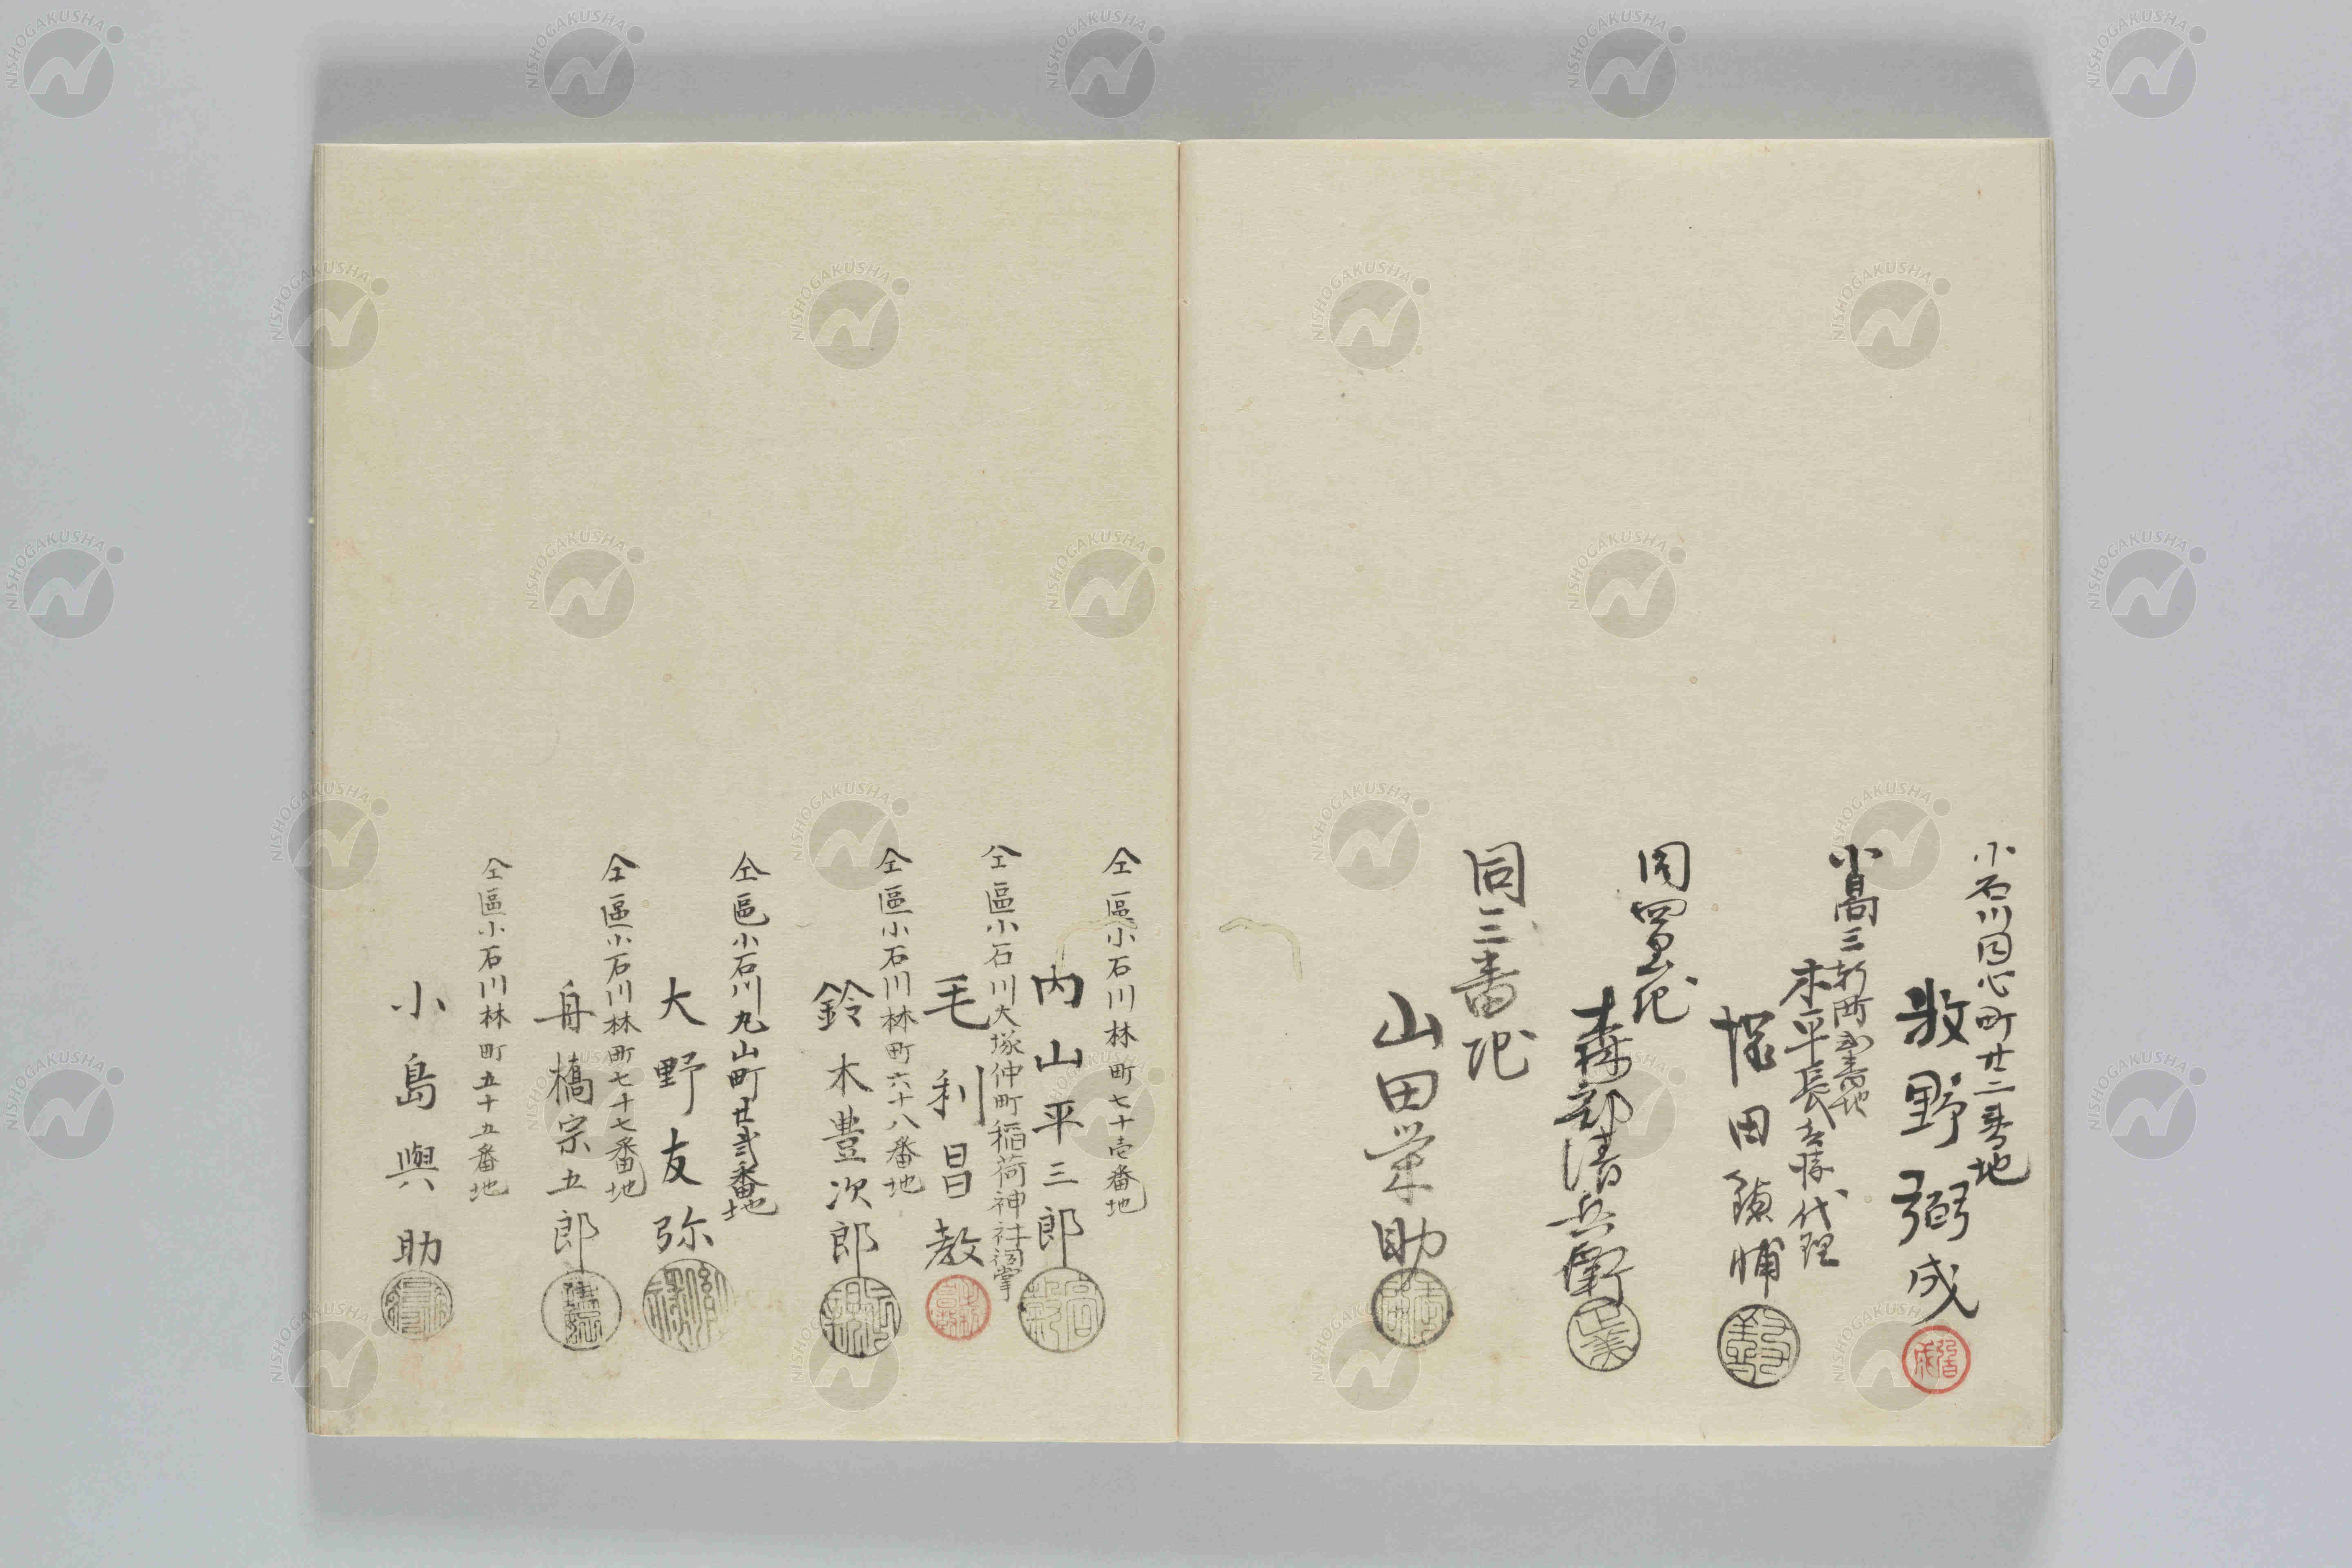 小石川同心町廿二番地
牧野弼成
小日向三軒町
本平長去勝代理
田鎮輔
同四番地
森部清兵衛
同三番地
山田栄助
仝區小石川林町七十壱番地
内山平三郎
仝區小石川大塚仲町稲荷神社祠掌
毛利昌教
仝區小石川林町六十八番地
鈴木豊次郎
仝區小石川丸山町廿弐番地
大野友弥
仝區小石川林町七十七番地
舟橋宗五郎
仝區小石川林町五十五番地
小島與助
NISHOGAKUSHA